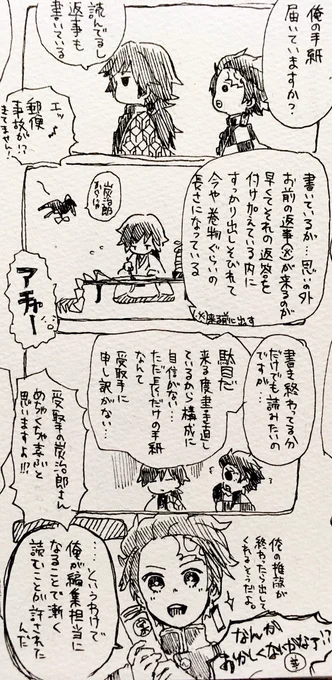 俺の手紙
届いていますか?
読んでるし
返事も
書いている
エッ
郵便
事故が!?
きてません!
書いているが…思いの外
お前の返事(※)が来るのが
早くてそれの返答を
付け加えている内に
すっかり出しそびれて
今や巻物ぐらいの
長さになっている
炭治郎
アチャー
書き終わってる分
だけでも読みたいの
ですが…
駄目だ
来る度書き直し
ているから構成に
自信がない…
ただ長いだけの手紙
なんて
受取手に
申し訳がない…
受取手の炭治郎さん
めちゃくちゃ喜ぶと
思いますよ!!?
俺の推敲が
終わったら出して
くれるそうだよ。
…というわけで
俺が編集担当に
なることで漸く
読むことが許された
んだ
なんか
おかしくないかなァ!?